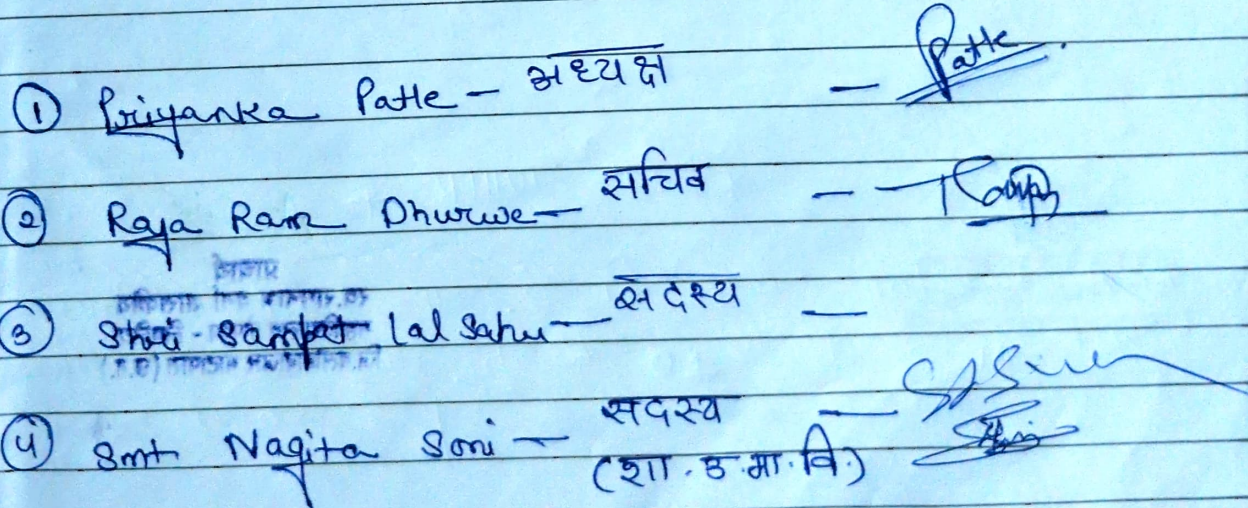 ① Priyanka Patle - अध्यक्ष - Patle
② Raja Ram Dhurwe - सचिव -
③ Shri Sampat Lal Sahu - सदस्य -
④ Smt Nagita Soni - सदस्य -
(शा. उ. मा. वि.)